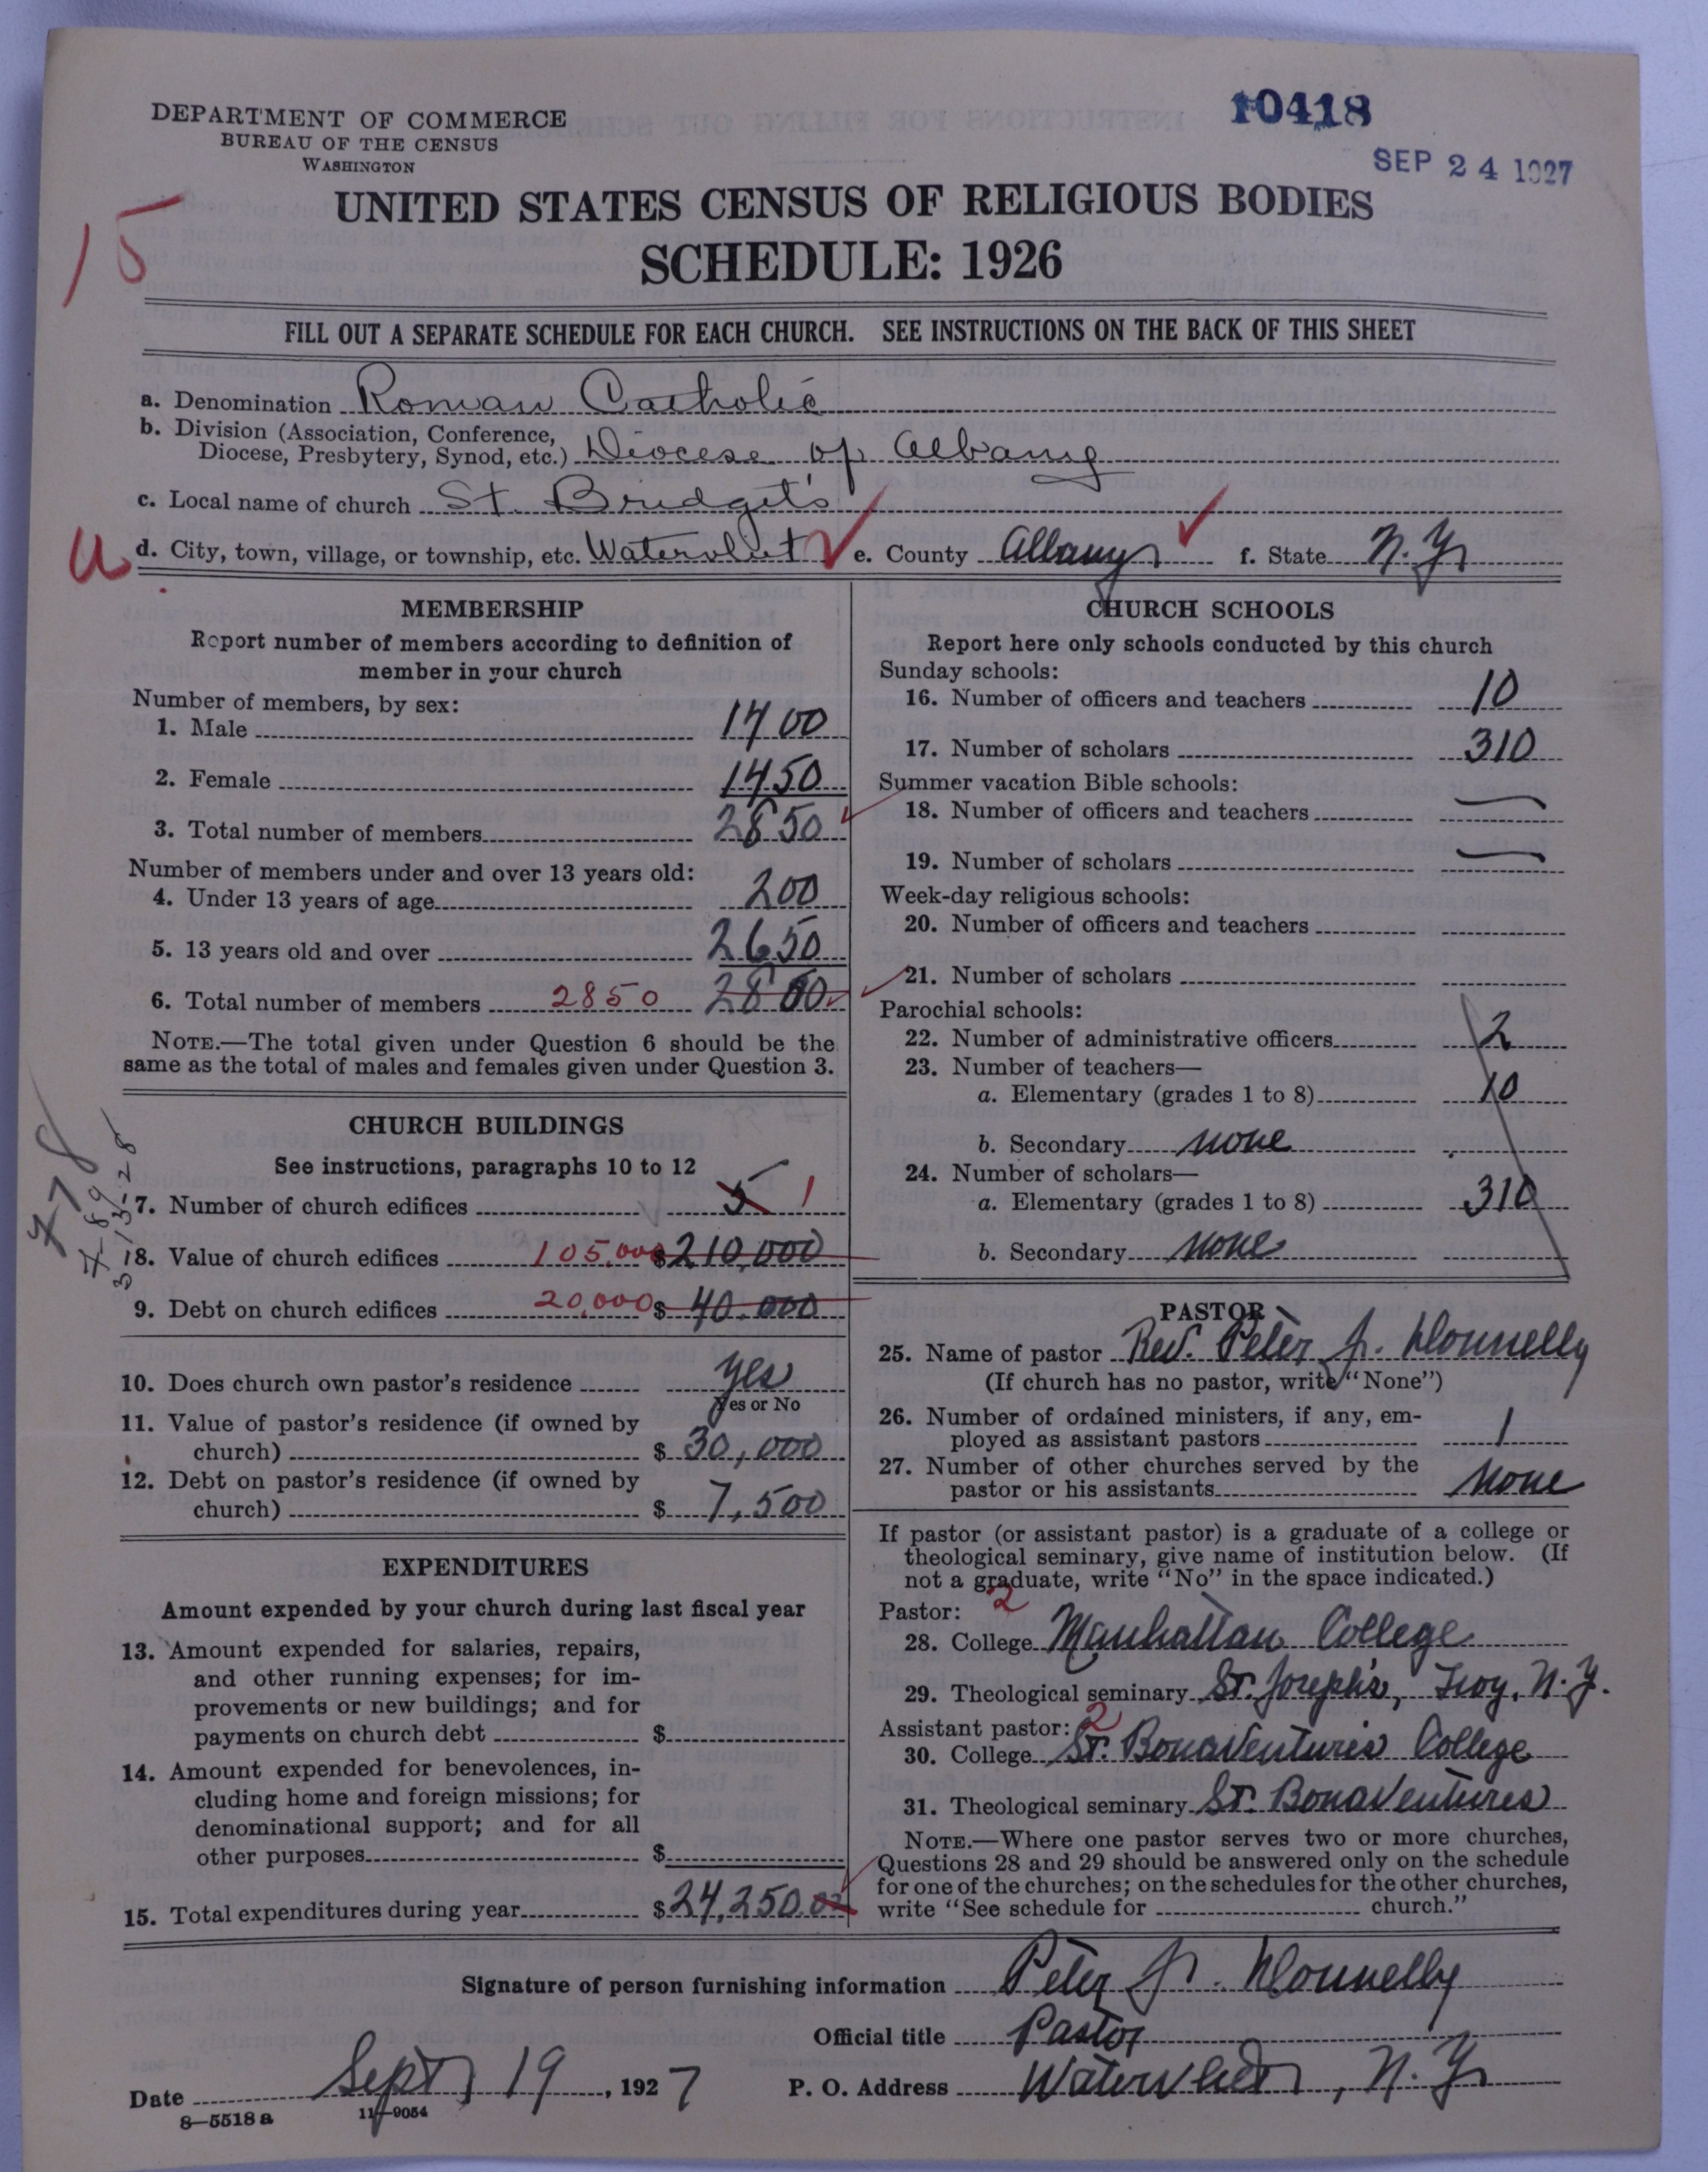 10418
SEP 24 1927
DEPARTMENT OF COMMERCE
BUREAU OF THE CENSUS
WASHINGTON
UNITED STATES CENSUS OF RELIGIOUS BODIES
SCHEDULE: 1926
15
FILL OUT A SEPARATE SCHEDULE FOR EACH CHURCH. SEE INSTRUCTIONS ON THE BACK OF THIS SHEET
a. Denomination Roman Catholic
b. Division (Association, Conference,
Diocese, Presbytery, Synod, etc.) Diocese of Albany
c. Local name of church St. Bridget's
U d. City, town, village, or township, etc. Watervliet e. County Albany f. State N.Y.
MEMBERSHIP
Report number of members according to definition of
member in your church
Number of members, by sex:
1. Male 1400
2. Female 1450
3. Total number of members 2850
Number of members under and over 13 years old:
4. Under 13 years of age 200
5. 13 years old and over 2650
6. Total number of members 2850
NOTE.—The total given under Question 6 should be the
same as the total of males and females given under Question 3.
CHURCH BUILDINGS
See instructions, paragraphs 10 to 12
7. Number of church edifices 5 1
8. Value of church edifices 105,000 $210,000
9. Debt on church edifices 20,000 $40,000
10. Does church own pastor's residence yes
Yes or No
11. Value of pastor's residence (if owned by
church) $30,000
12. Debt on pastor's residence (if owned by
church) $7,500
EXPENDITURES
Amount expended by your church during last fiscal year
13. Amount expended for salaries, repairs,
and other running expenses; for im-
provements or new buildings; and for
payments on church debt $
14. Amount expended for benevolences, in-
cluding home and foreign missions; for
denominational support; and for all
other purposes $
15. Total expenditures during year $24,250
CHURCH SCHOOLS
Report here only schools conducted by this church
Sunday schools:
16. Number of officers and teachers 10
17. Number of scholars 310
Summer vacation Bible schools:
18. Number of officers and teachers —
19. Number of scholars —
Week-day religious schools:
20. Number of officers and teachers
21. Number of scholars
Parochial schools:
22. Number of administrative officers 2
23. Number of teachers—
a. Elementary (grades 1 to 8) 10
b. Secondary none
24. Number of scholars—
a. Elementary (grades 1 to 8) 310
b. Secondary none
PASTOR
25. Name of pastor Rev. Peter J. Donnelly
(If church has no pastor, write "None")
26. Number of ordained ministers, if any, em-
ployed as assistant pastors 1
27. Number of other churches served by the
pastor or his assistants none
If pastor (or assistant pastor) is a graduate of a college or
theological seminary, give name of institution below. (If
not a graduate, write "No" in the space indicated.)
Pastor: 2
28. College Manhattan College
29. Theological seminary St. Joseph's, Troy, N.Y.
Assistant pastor: 2
30. College St. Bonaventure's College
31. Theological seminary St. Bonaventures
NOTE.—Where one pastor serves two or more churches,
Questions 28 and 29 should be answered only on the schedule
for one of the churches; on the schedules for the other churches,
write "See schedule for church."
Signature of person furnishing information Peter J. Donnelly
Official title Pastor
Date Sept 19, 1927 P. O. Address Watervliet, N.Y.
8—5518a 11—9054